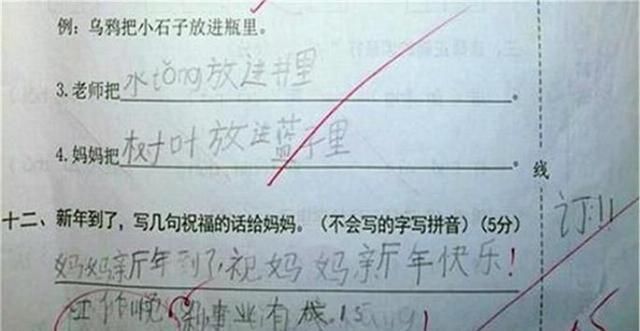 例：乌鸦把小石子放进瓶里。
3.老师把水tǒng放进井里。
4.妈妈把树叶放进蓝子里。
线
十二、新年到了，写几句祝福的话给妈妈。（不会写的字写拼音）（5分）
订!!
妈妈新年到了,祝妈妈新年快乐!
工作
事业有